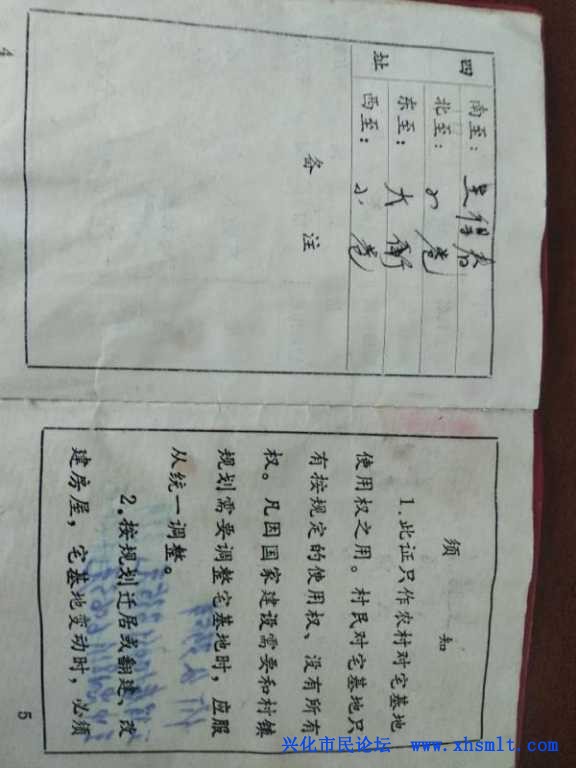 四址
南至：
北至：小巷
东至：大街
西至：小巷
备注
4
须知
1.此证只作农村对宅基地
使用权之用。村民对宅基地只
有按规定的使用权、没有所有
权。凡因国家建设需要和村镇
规划需要调整宅基地时，应服
从统一调整。
2.按规划迁居或翻建、改
建房屋，宅基地变动时，必须
5
兴化市民论坛 www.xhsmlt.com